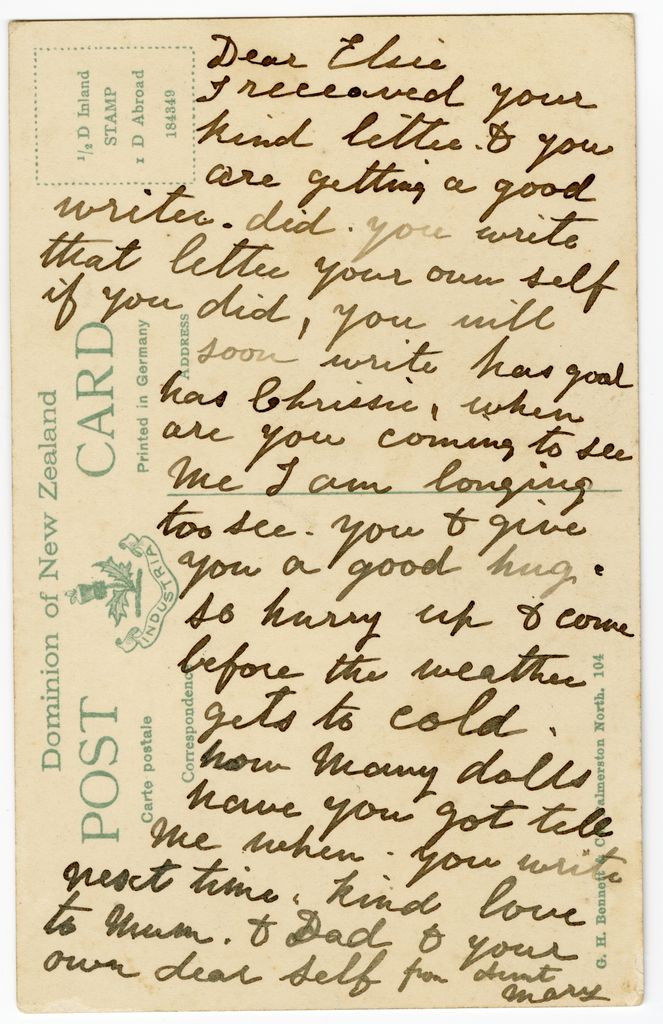 Dear Elsie
I receaved your
kind letter. & you
are getting a good
writer. did. you write
that letter your own self
if you did, you will
soon write has good
has Chrissie, when
are you coming to see
me I am longing
too see. you & give
you a good hug.
so hurry up & come
before the weather
gets to cold.
how many dolls
have you got tell
me when. you write
next time. kind love
to Mum. & Dad & your
own dear self from Aunt
Mary
Dominion of New Zealand
POST CARD
INDUSTRIA
Carte postale
Printed in Germany
Correspondence
ADDRESS
1/2 D Inland
STAMP
1 D Abroad
184349
G. H. Bennett & Co Palmerston North. 104